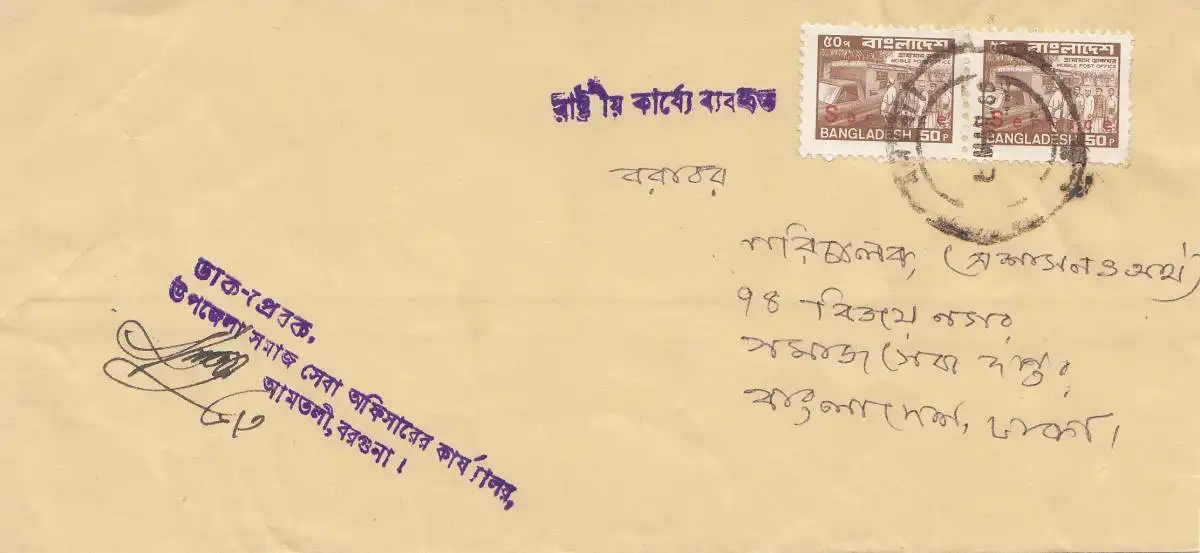 ৫০প বাংলাদেশ
ভ্রাম্যমান ডাকঘর
MOBILE POST OFFICE
Service
BANGLADESH 50P
৫০প বাংলাদেশ
ভ্রাম্যমান ডাকঘর
MOBILE POST OFFICE
Service
BANGLADESH 50P
রাষ্ট্রীয় কার্য্যে ব্যবহৃত
বরাবর
পরিচালক, (প্রশাসন ও অর্থ)
৭৪ বিজয় নগর
সমাজ সেবা দপ্তর
বাংলাদেশ, ঢাকা।
ডাক-প্রেরক,
উপজেলা সমাজ সেবা অফিসারের কার্যালয়,
আমতলী, বরগুনা।